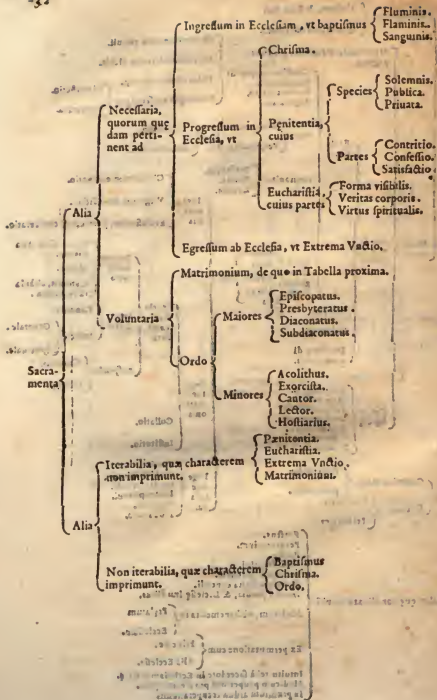 Ingressum in Ecclesiam, vt baptismus
Fluminis.
Flaminis.
Sanguinis.
Necessaria,
quorum quę
dam perti-
nent ad
Progressum in
Ecclesia, vt
Chrisma.
Pęnitentia,
cuius
Species
Solemnis.
Publica.
Priuata.
Partes
Contritio.
Confessio.
Satisfactio.
Eucharistia,
cuius partes
Forma visibilis.
Veritas corporis.
Virtus spiritualis.
Egressum ab Ecclesia, vt Extrema Vnctio.
Sacra-
menta
Alia
Voluntaria
Matrimonium, de quo in Tabella proxima.
Ordo
Maiores
Episcopatus.
Presbyteratus.
Diaconatus.
Subdiaconatus.
Minores
Acolithus.
Exorcista.
Cantor.
Lector.
Hostiarius.
Alia
Iterabilia, quæ characterem
non imprimunt.
Pænitentia.
Eucharistia.
Extrema Vnctio.
Matrimonium.
Non iterabilia, quæ characterem
imprimunt.
Baptismus
Chrisma.
Ordo.